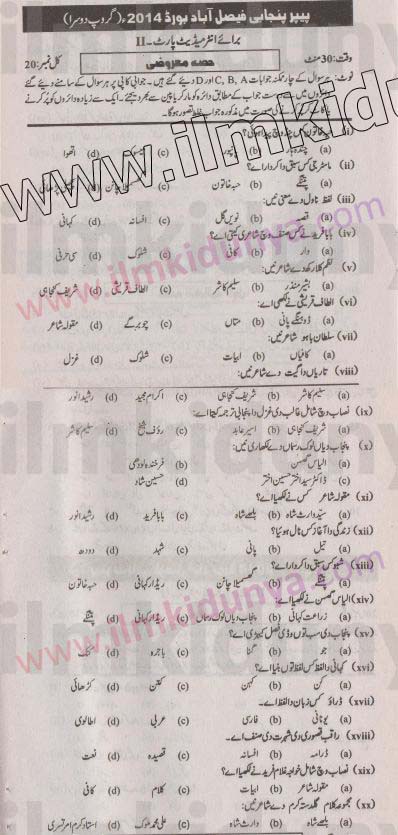 پیپر پنجابی فیصل آباد بورڈ 2014ء (گروپ دوسرا)
برائے انٹرمیڈیٹ پارٹ۔II
وقت: 30 منٹ حصہ معروضی کل نمبر: 20
نوٹ: ہر سوال کے چار ممکنہ جوابات A, B, C اور D دیئے گئے ہیں۔ جوابی کاپی پر ہر سوال کے سامنے دیئے گئے
دائروں میں سے درست جواب کے مطابق دائرہ کو مارکر یا پین سے بھر دیجئے۔ ایک سے زیادہ دائروں کو پُر کرنے
کی صورت میں مذکورہ جواب غلط تصور ہوگا۔
(i) حبہ خاتون وچ پیدا ہوئی؟
(a) چندہار (b) (c) (d) اتھوا
(ii) ماسٹر جی کس سبق دا کردار اے؟
(a) پنجے (b) حبہ خاتون (c) (d)
(iii) لفظ ناول دے معنی نیں:
(a) قصہ (b) نویں گل (c) افسانہ (d) کہانی
(iv) بابا فرید نے کس صنف وچ شاعری کیتی اے؟
(a) وار (b) کافی (c) شلوک (d) سی حرفی
(v) نظم کلار کھ دے شاعر نیں:
(a) بشیر منذر (b) سلیم کاشر (c) الطاف قریشی (d) شریف کنجاہی
(vi) الطاف قریشی نے لکھی اے:
(a) ڈونگھے پانی (b) متاں (c) چوبرگے (d) مقولہ شاعر
(vii) سلطان باہو شاعر نیں:
(a) کافیاں (b) ابیات (c) شلوک (d) غزل
(viii) تاریاں دا گیت دے شاعر نیں:
(a) سلیم کاشر (b) شریف کنجاہی (c) اکرام مجید (d) رشید انور
(ix) نصاب وچ شامل غالب دی غزل دا پنجابی ترجمہ کیتا اے:
(a) شریف کنجاہی (b) اسیر عابد (c) رؤف شیخ (d) سلیم کاشر
(x) پنجاب دیاں لوک رسماں دے لکھاری نیں:
(a) الیاس گھمن (b) فرخندہ لودھی
(c) ڈاکٹر سید اختر حسین اختر (d) حسین شاد
(xi) مقولہ شاعر کس نے لکھیا اے؟
(a) سید وارث شاہ (b) بلھے شاہ (c) بابا فرید (d) رشید انور
(xii) زندگی دا آغاز کس نال ہویا؟
(a) تیل (b) پانی (c) شہد (d) دودھ
(xiii) شبو کس سبق دا کردار اے؟
(a) پنجے (b) گھسمیلا چانن (c) ریڈار کہانی (d) حبہ خاتون
(xiv) الیاس گھمن نے لکھیا اے:
(a) زراعت کہانی (b) پنجاب دیاں لوک رسماں (c) ریڈار کہانی (d) پنجے
(xv) پنجاب دی سب توں وڈی فصل کیہڑی اے؟
(a) جو (b) گنا (c) باجرہ (d) کنک
(xvi) کہانی دا لفظ کس لفظ توں بنیا اے؟
(a) کن (b) کہن (c) کتھن (d) کڑھائی
(xvii) ڈراؤ کس زبان دا لفظ اے۔
(a) یونانی (b) فارسی (c) عربی (d) اطالوی
(xviii) راقب قصوری دی شہرت دی صنف اے۔
(a) ڈرامہ (b) افسانہ (c) قصیدہ (d) نعت
(xix) نصاب وچ شامل خواجہ غلام فرید نے لکھیا اے؟
(a) مقولہ شاعر (b) ابیات (c) کلام (d) کافی
(xx) مجموعہ کلام گلدستہ کرم دے شاعر نیں:
(a) بلھے شاہ (b) وارث شاہ (c) علی محمد ملوک (d) استاد کرم امرتسری
www.ilmkidunya.com